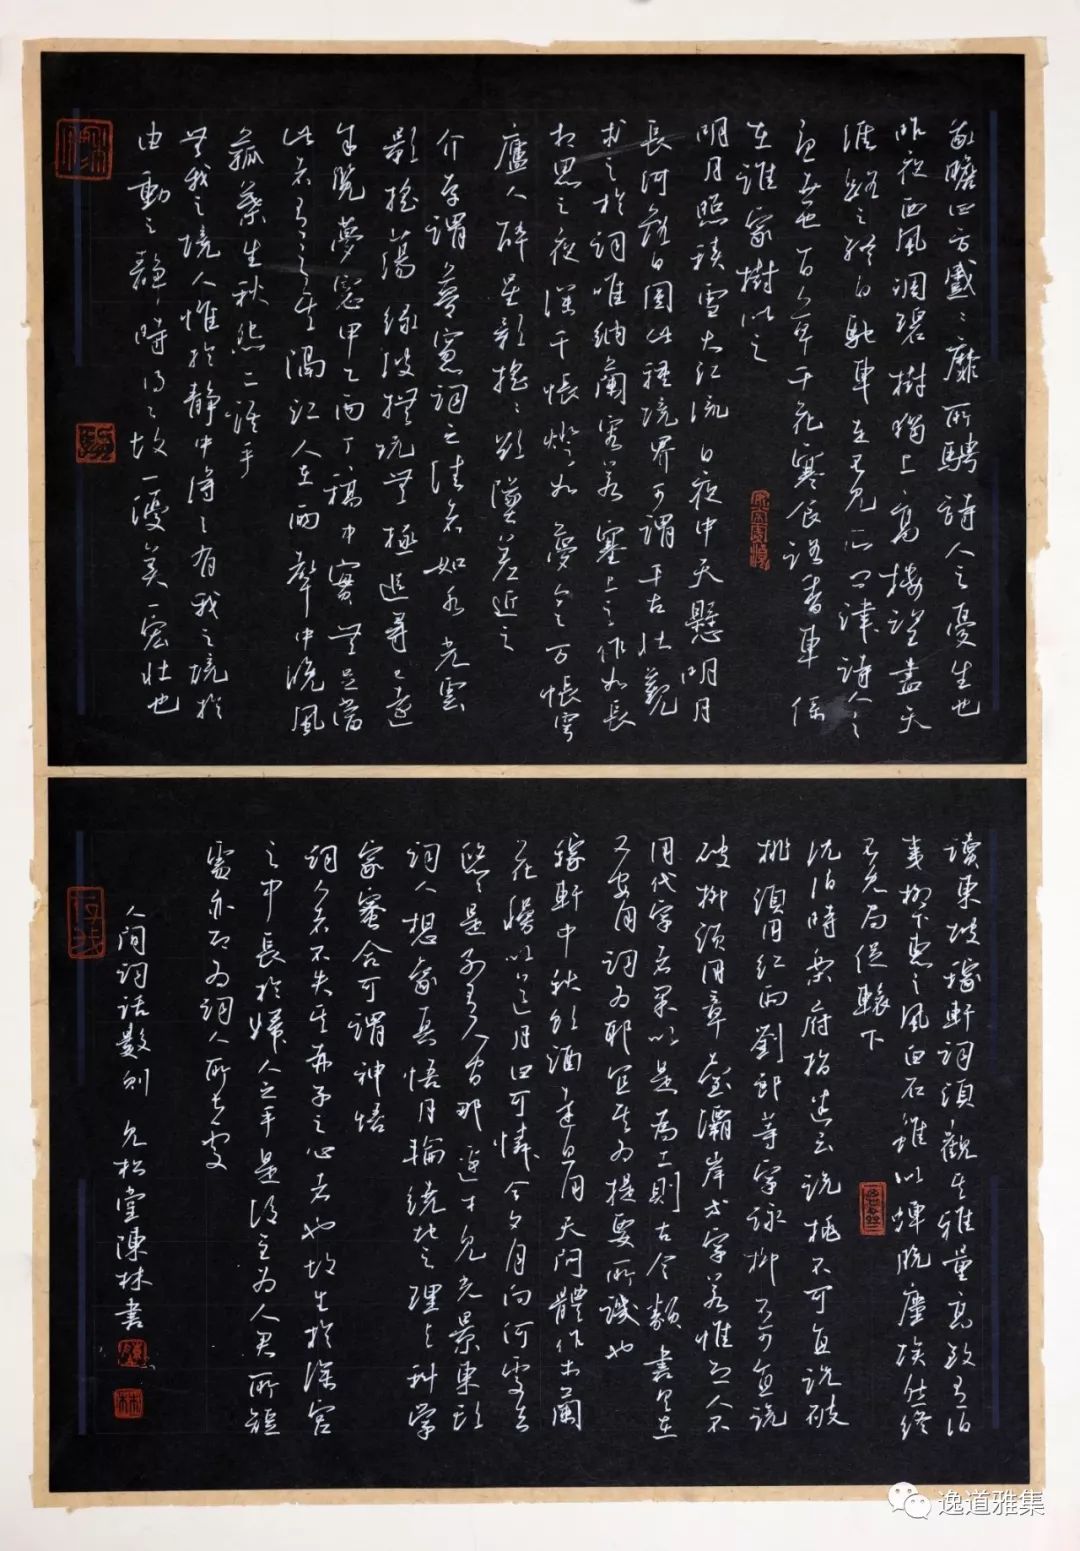 我瞻四方蹙蹙靡所騁詩人之憂生也
昨夜西風凋碧樹獨上高樓望盡天
涯路似之終日馳車走不見所問津詩人之
憂世也百草千花寒食路香車係
在誰家樹似之
明月照積雪大江流日夜中天懸明月
長河落日圓此種境界可謂千古壯觀
求之於詞唯納蘭容若塞上之作如長
相思之夜深千帳燈如夢令之万帳穹
廬人醉星影搖搖欲墜差近之
介存謂夢窗詞之佳者如水光雲
影搖蕩綠波撫玩無極追尋已遠
余覽夢窗甲乙丙丁稿中實無足當
此者有之其隔江人在雨聲中晚風
菰葉生秋怨二語乎
無我之境人惟於靜中得之有我之境於
由動之靜時得之故一優美一宏壯也
讀東坡稼軒詞須觀其雅量高致有伯
夷柳下惠之風白石雖似蟬脫塵埃然終
不免局促轅下
沈伯時樂府指迷云說桃不可直說破
桃須用紅雨劉郎等字詠柳不可直說
破柳須用章臺灞岸等字若惟恐人不
用代字者果以是為工則古今類書具在
又安用詞為耶宜其為提要所譏也
稼軒中秋飲酒達旦用天問體作木蘭
花慢以送月曰可憐今夕月向何處去
悠悠是別有人間那邊才見光景東頭
詞人想象直悟月輪繞地之理與科學
家密合可謂神悟
詞人者不失其赤子之心者也故生於深宮
之中長於婦人之手是後主為人君所短
處亦即為詞人所長處
人間詞話數則 允松堂陳林書
逸道雅集